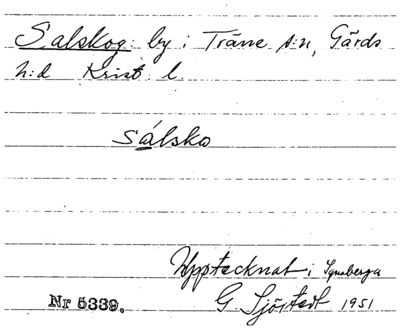 Salskog: by i Träne s:n, Gärds
h:d Krist. l.
sálsko
Upptecknat i Lyneberga
G. Sjöstedt 1951
Nr 5339.